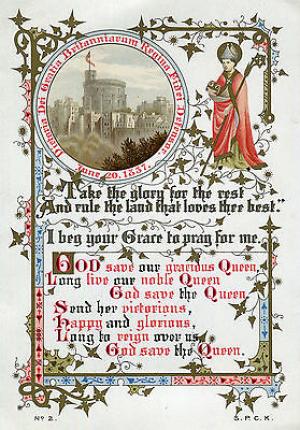 Victoria Dei Gratia Britanniarum Regina Fidei Defensor
June 20. 1837.
"Take the glory for the rest
And rule the land that loves thee best."
I beg your Grace to pray for me.
GOD save our gracious Queen,
Long live our noble Queen
God save the Queen.
Send her victorious,
Happy and glorious,
Long to reign over us,
God save the Queen.
No 2.
S.P.C.K.